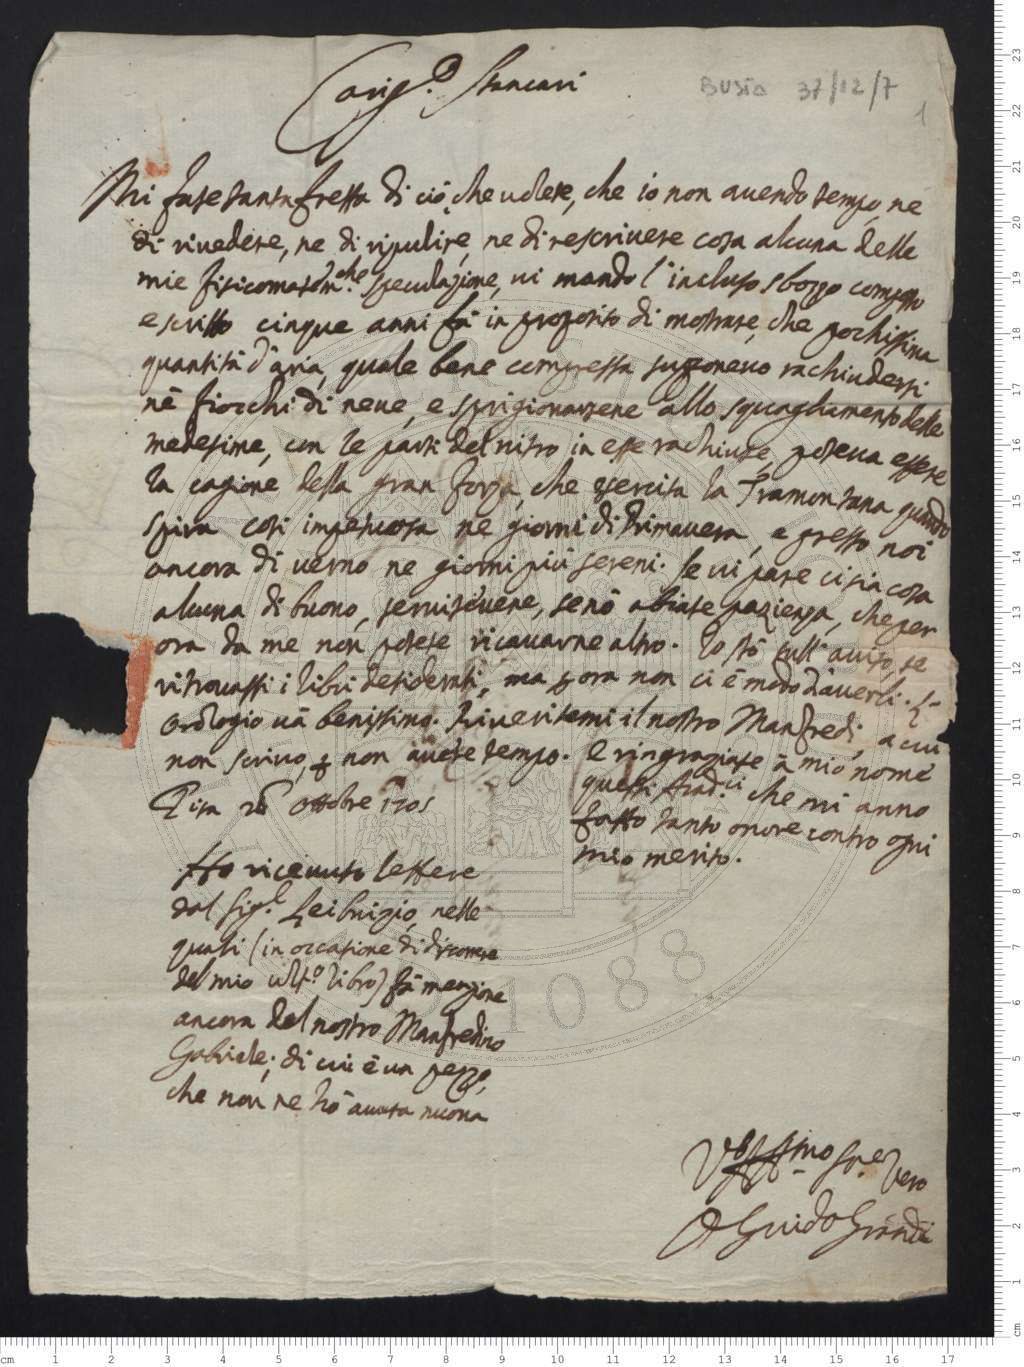 Carig.o Stancari
Busta 37/12/7
1
Mi fate tanta fretta di ciò, che volete, che io non avendo tempo, ne
di rivedere, ne di ripulire, ne di rescrivere cosa alcuna delle
mie fisicomatem.che speculazione, vi mando l'incluso sbozzo composto
e scritto cinque anni fà in proposito di mostrare, che pochissima
quantità d'aria, quale bene compressa supponevo rachiudersi
nè fiocchi di neve, e sprigionarsene allo squagliamento delle
medesime, con le parti del nitro in esse rachiuse, poteva essere
la cagione della gran forza, che esercita la Tramontana quando
spira così impetuosa ne giorni di Primavera, e presso noi
ancora di verno ne giorni più sereni. Se vi pare ci sia cosa
alcuna di buono, servitevene, se nò abiate pazienza, che per
ora da me non potete ricavarne altro. Io stò sull'aviso, se
ritrovassi i libri desiderati, ma p ora non ci è modo d'averli. L'
orologio và benissimo. Riveritemi il nostro Manfredi, a cui
non scrivo, p non avere tempo. E ringraziate à mio nome
questi Accad.ci che mi anno
fatto tanto onore contro ogni
mio merito.
Pisa 26 Ottobre 1705
Ho ricevuto lettere
dal Sig.r Leibnizio, nelle
quali (in occasione di discorrere
del mio ult.o libro) fà menzione
ancora del nostro Manfredino
Gabriele; di cui è un pezzo,
che non ne hò avuta nuova
Ser.e Vero
D Guido Grandi
1088